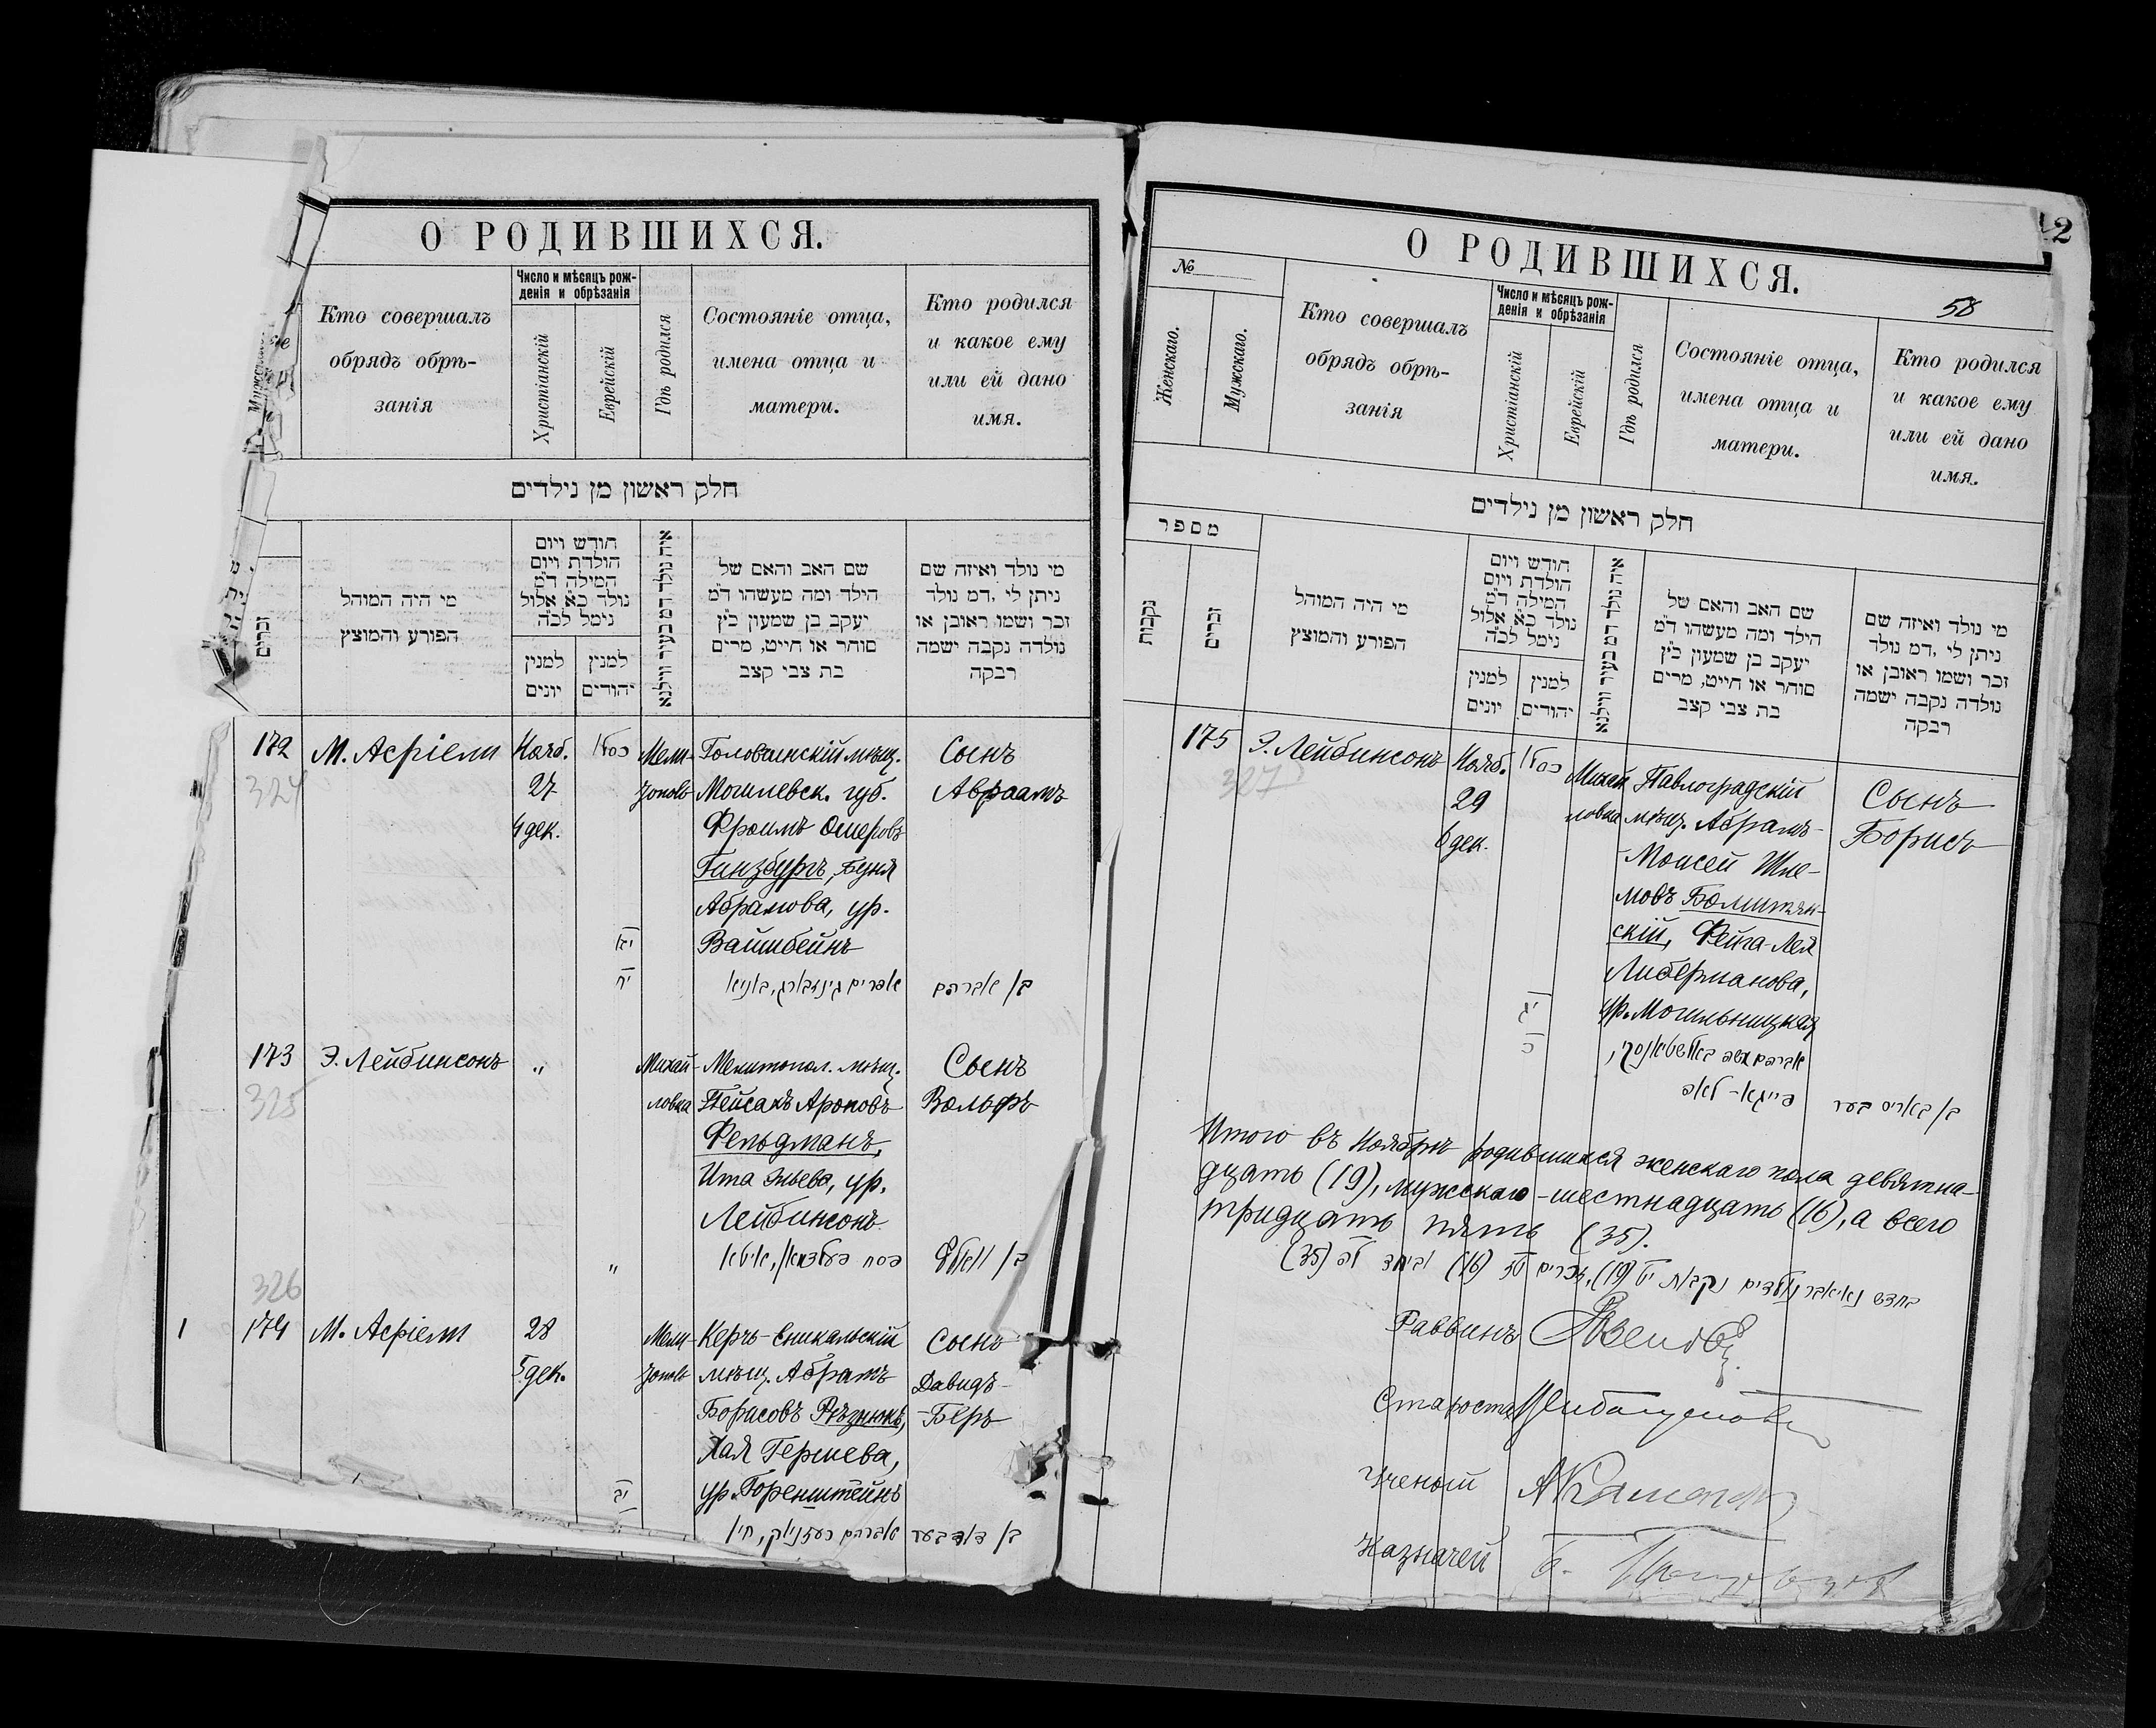 О РОДИВШИХСЯ.
Кто совершалъ
обрядъ обрѣ-
занія
Число и мѣсяцъ рож-
денія и обрѣзанія
Христіанскій
Еврейскій
Гдѣ родился
Состояніе отца,
имена отца и
матери.
Кто родился
и какое ему
или ей дано
имя.
חלק ראשון מן נילדים
זכרים
מי היה המוהל
הפורע והמוצץ
חודש ויום
הולדת ויום
המילה ד״מ
נולד כ״א אלול
נימל לכ״ה
למנין
יונים
למנין
יהודים
איה נולד דמ בעיר ווילנא
שם האב והאם של
הילד ומה מעשהו ד״מ
יעקב בן שמעון כ״ץ
סוחר או חייט, מרים
בת צבי קצב
מי נולד ואיזה שם
ניתן לי ,דמ נולד
זכר ושמו ראובן או
נולדה נקבה ישמה
רבקה
172
324
М. Асріели
Нояб.
27
4 дек.
כסלו
יח
Мели-
Головчинскій мѣщ.
Могилевск. губ.
Фроимъ Ошеровъ
Гинзбургъ, Буня
Абрамова, ур.
Вайнбейнъ
אפרים גינזבורג, בוניא
Сынъ
Авраамъ
בן אברהם
173
325
Э. Лейбинсонъ
"
"
Михай-
ловка
Мелитопол. мѣщ.
Пейсахъ Ароновъ
Фельдманъ,
Ита Эльева, ур.
Лейбинсонъ
פסח פעלדמאן, איטא
Сынъ
Вольфъ
בן וואלף
326
1
174
М. Асріели
28
5 дек.
Мели-
Керчь-Еникальскій
мѣщ. Абрамъ
Борисовъ Рѣзнюкъ,
Хая Гершева,
ур. Горенштейнъ
אברהם רעזניוק, חיא
Сынъ
Давидъ-
-Беръ
בן דוד בער
2
О РОДИВШИХСЯ.
58
№
Женскаго.
Мужскаго.
Кто совершалъ
обрядъ обрѣ-
занія
Число и мѣсяцъ рож-
денія и обрѣзанія
Христіанскій
Еврейскій
Гдѣ родился
Состояніе отца,
имена отца и
матери.
Кто родился
и какое ему
или ей дано
имя.
חלק ראשון מן נילדים
מספר
נקבות
זכרים
מי היה המוהל
הפורע והמוצץ
חודש ויום
הולדת ויום
המילה ד״מ
נולד כ״א אלול
נימל לכ״ה
למנין
יונים
למנין
יהודים
איה נולד דמ בעיר ווילנא
שם האב והאם של
הילד ומה מעשהו ד״מ
יעקב בן שמעון כ״ץ
סוחר או חייט, מרים
בת צבי קצב
מי נולד ואיזה שם
ניתן לי ,דמ נולד
זכר ושמו ראובן או
נולדה נקבה ישמה
רבקה
175
327
Э. Лейбинсонъ
Нояб.
29
6 дек.
כסלו
Михай
ловка
Павлоградскій
мѣщ. Абрамъ-
-Моисей Шле-
мовъ Болтянскій,
Фейга-Лея
Либерманова,
ур. Могильницкая
פייגא-לאה
Сынъ
Борисъ
בן באריס בער
Итого въ Ноябрѣ родившихся женскаго пола девятна-
дцать (19), мужскаго-шестнадцать (16), а всего
тридцать пять (35).
בחדש נאיאבר נולדים נקבות יט (19), זכרים טז (16) וביחד לה (35)
Раввинъ
Староста
Ученый
Казначей